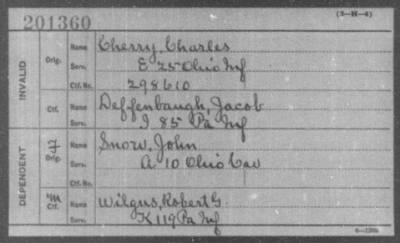 201360 (3-H-4)
INVALID
Orig. Name Cherry, Charles
Serv. E 25 Ohio Inf
Ctf. No. 298610
Ctf. Name Deffenbaugh, Jacob
Serv. I 85 Pa Inf
DEPENDENT
Orig. Name Snow, John
Serv. A 10 Ohio Cav
Ctf. No.
M Ctf. Name Wilgus, Robert G.
Serv. K 119 Pa Inf